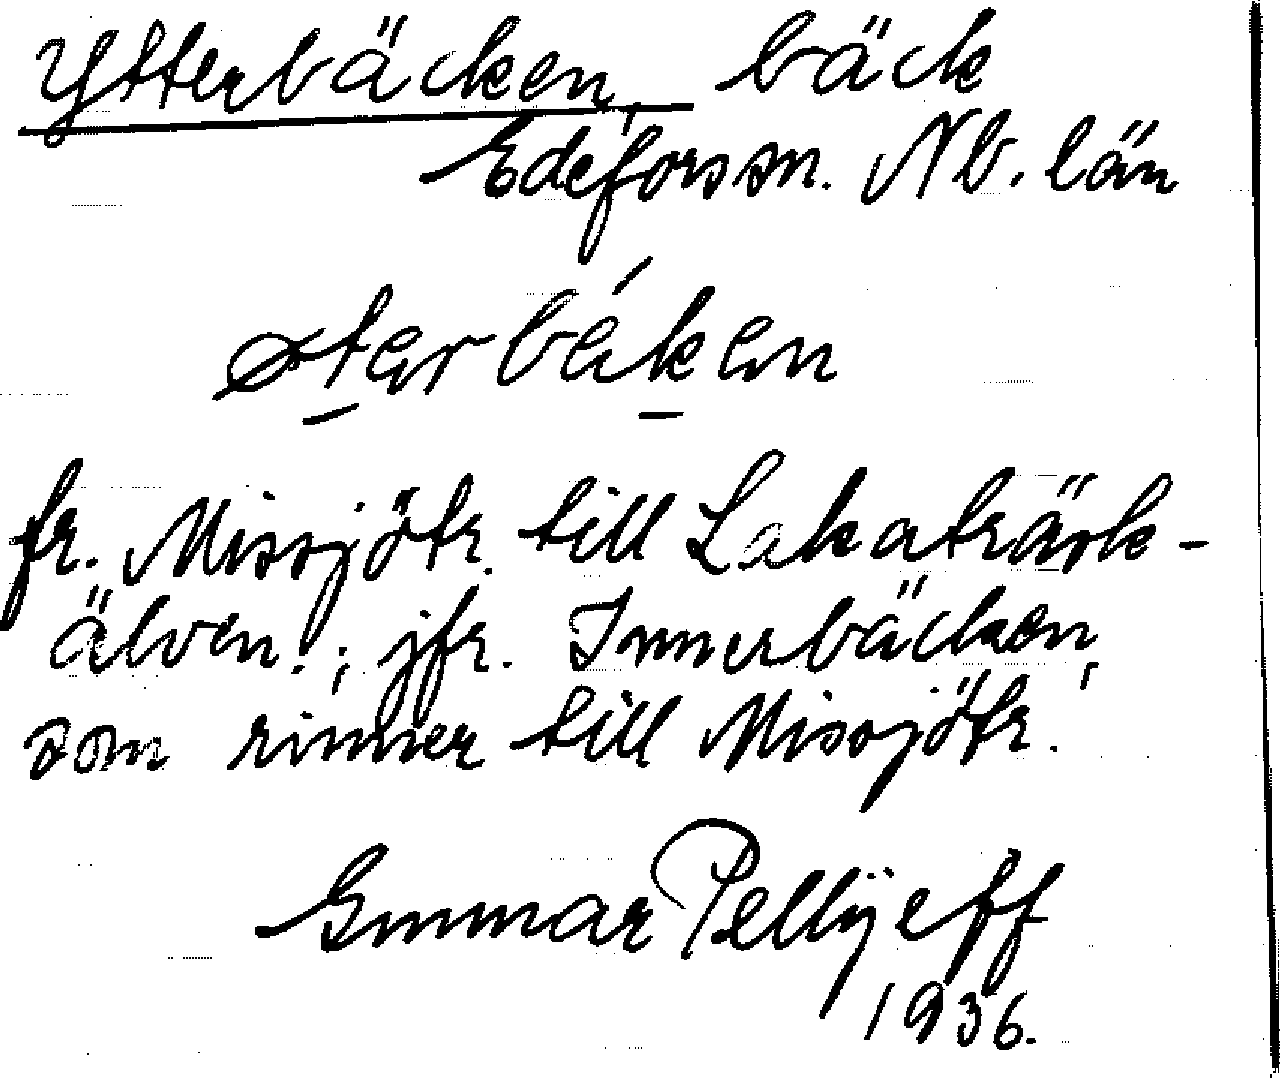 Ytterbäcken, bäck
Edefors sn. Nb. län
øtərbékən
fr. Missjötr. till Lakaträsk-
älven.; jfr. Innerbäcken,
som rinner till Missjötr.
Gunnar Pellijeff
1936.